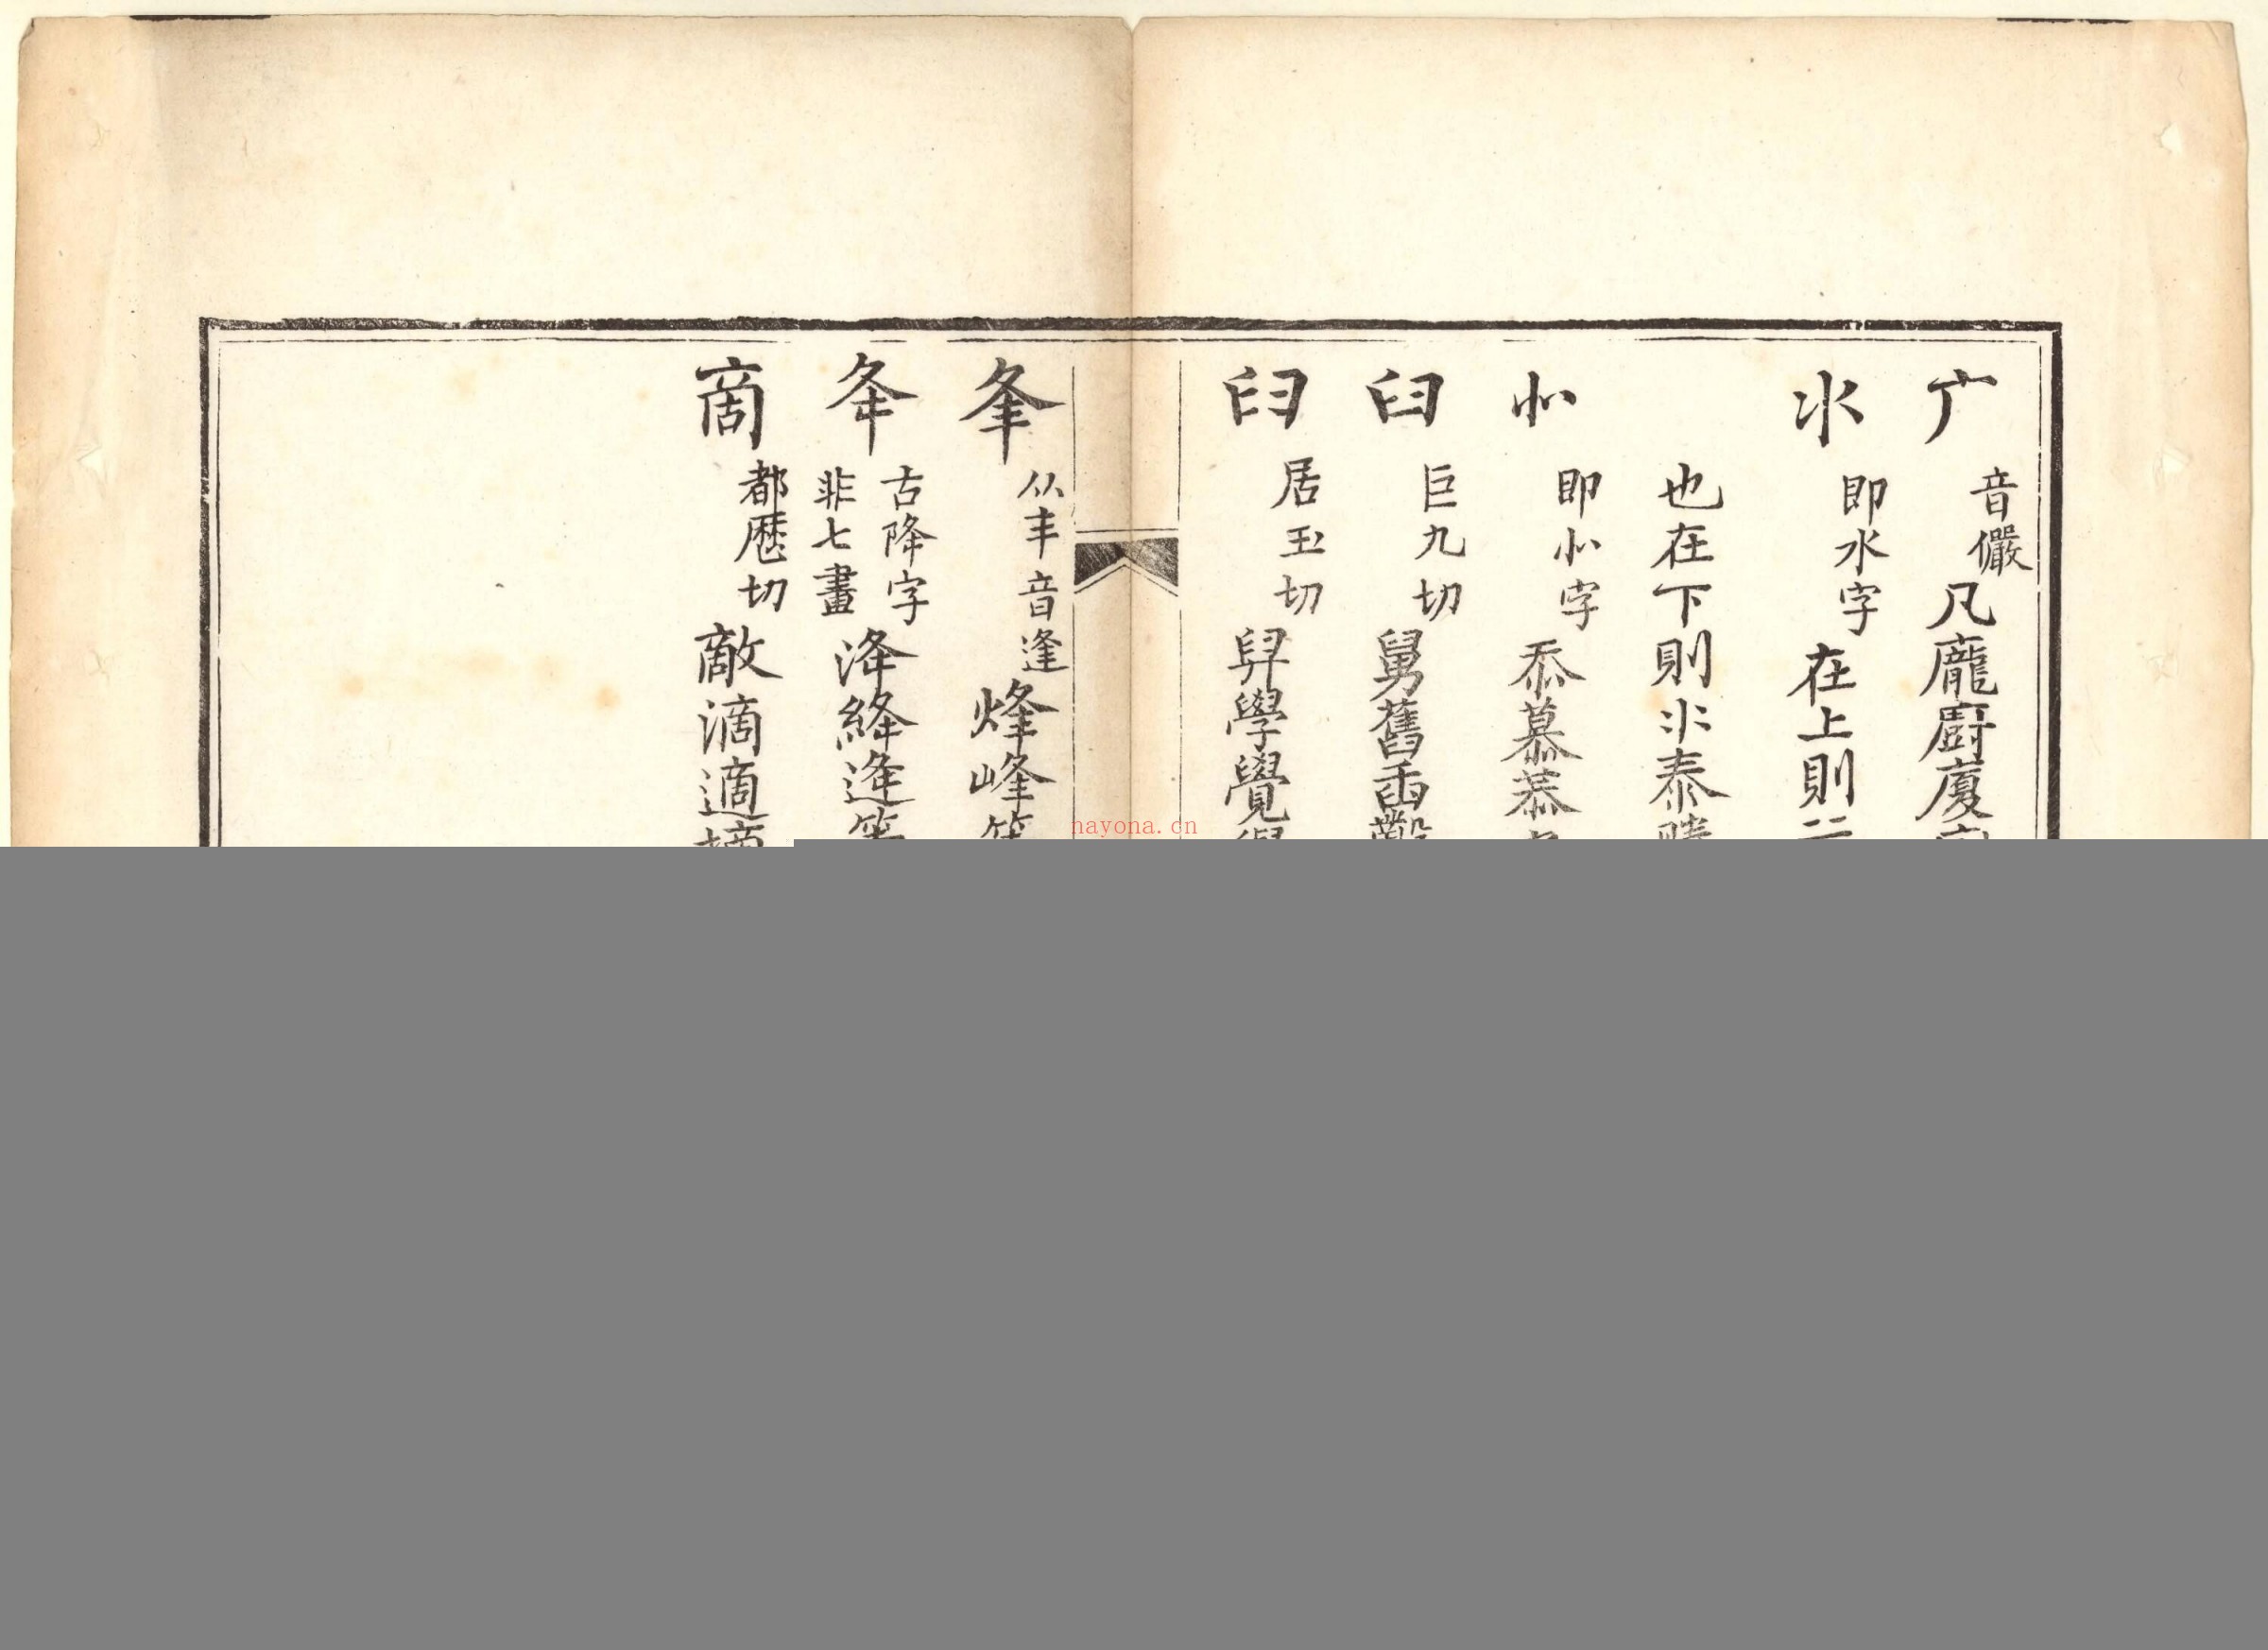 广 音儼 凡龐廚廈
氺 即水字 在上則
也在下則氺泰
⺗ 即⺗字 忝慕恭
臼 巨九切 舅舊臿
𦥑 居玉切 舁學覺
夆 从丰音逢 烽峰
夅 古降字非七畫 洚絳逄
啇 都歷切 敵滴適
nayona.cn